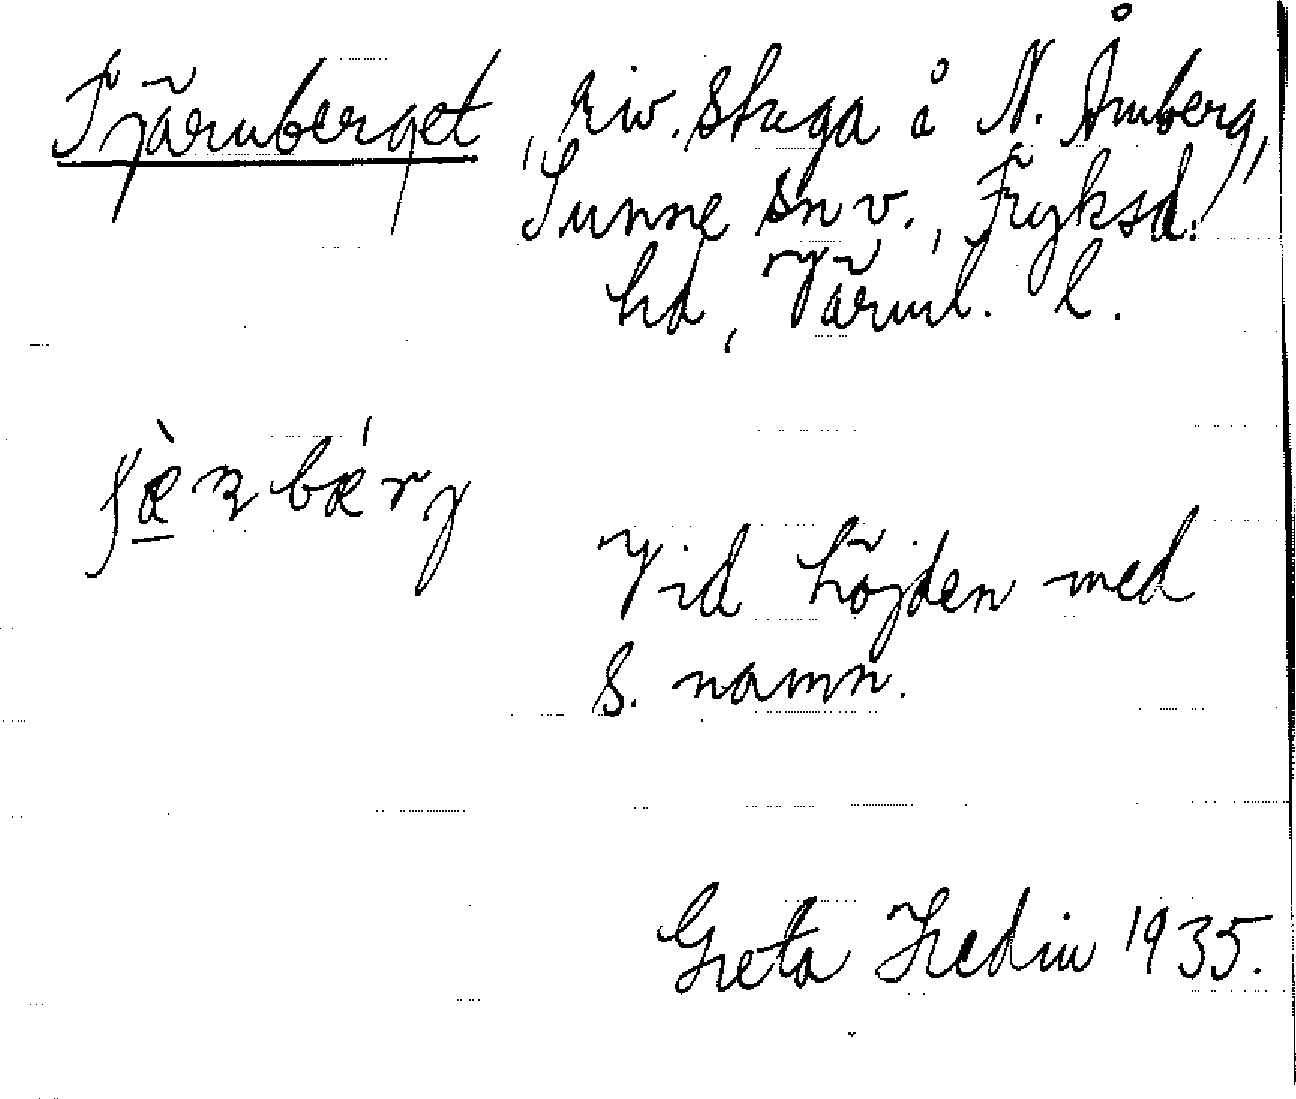 Tjärnberget, riv. stuga å N. Åmberg,
Sunne snv., Fryksd.
hd, Värml. l.
Vid höjden med
s. namn.
Greta Hedin 1935.